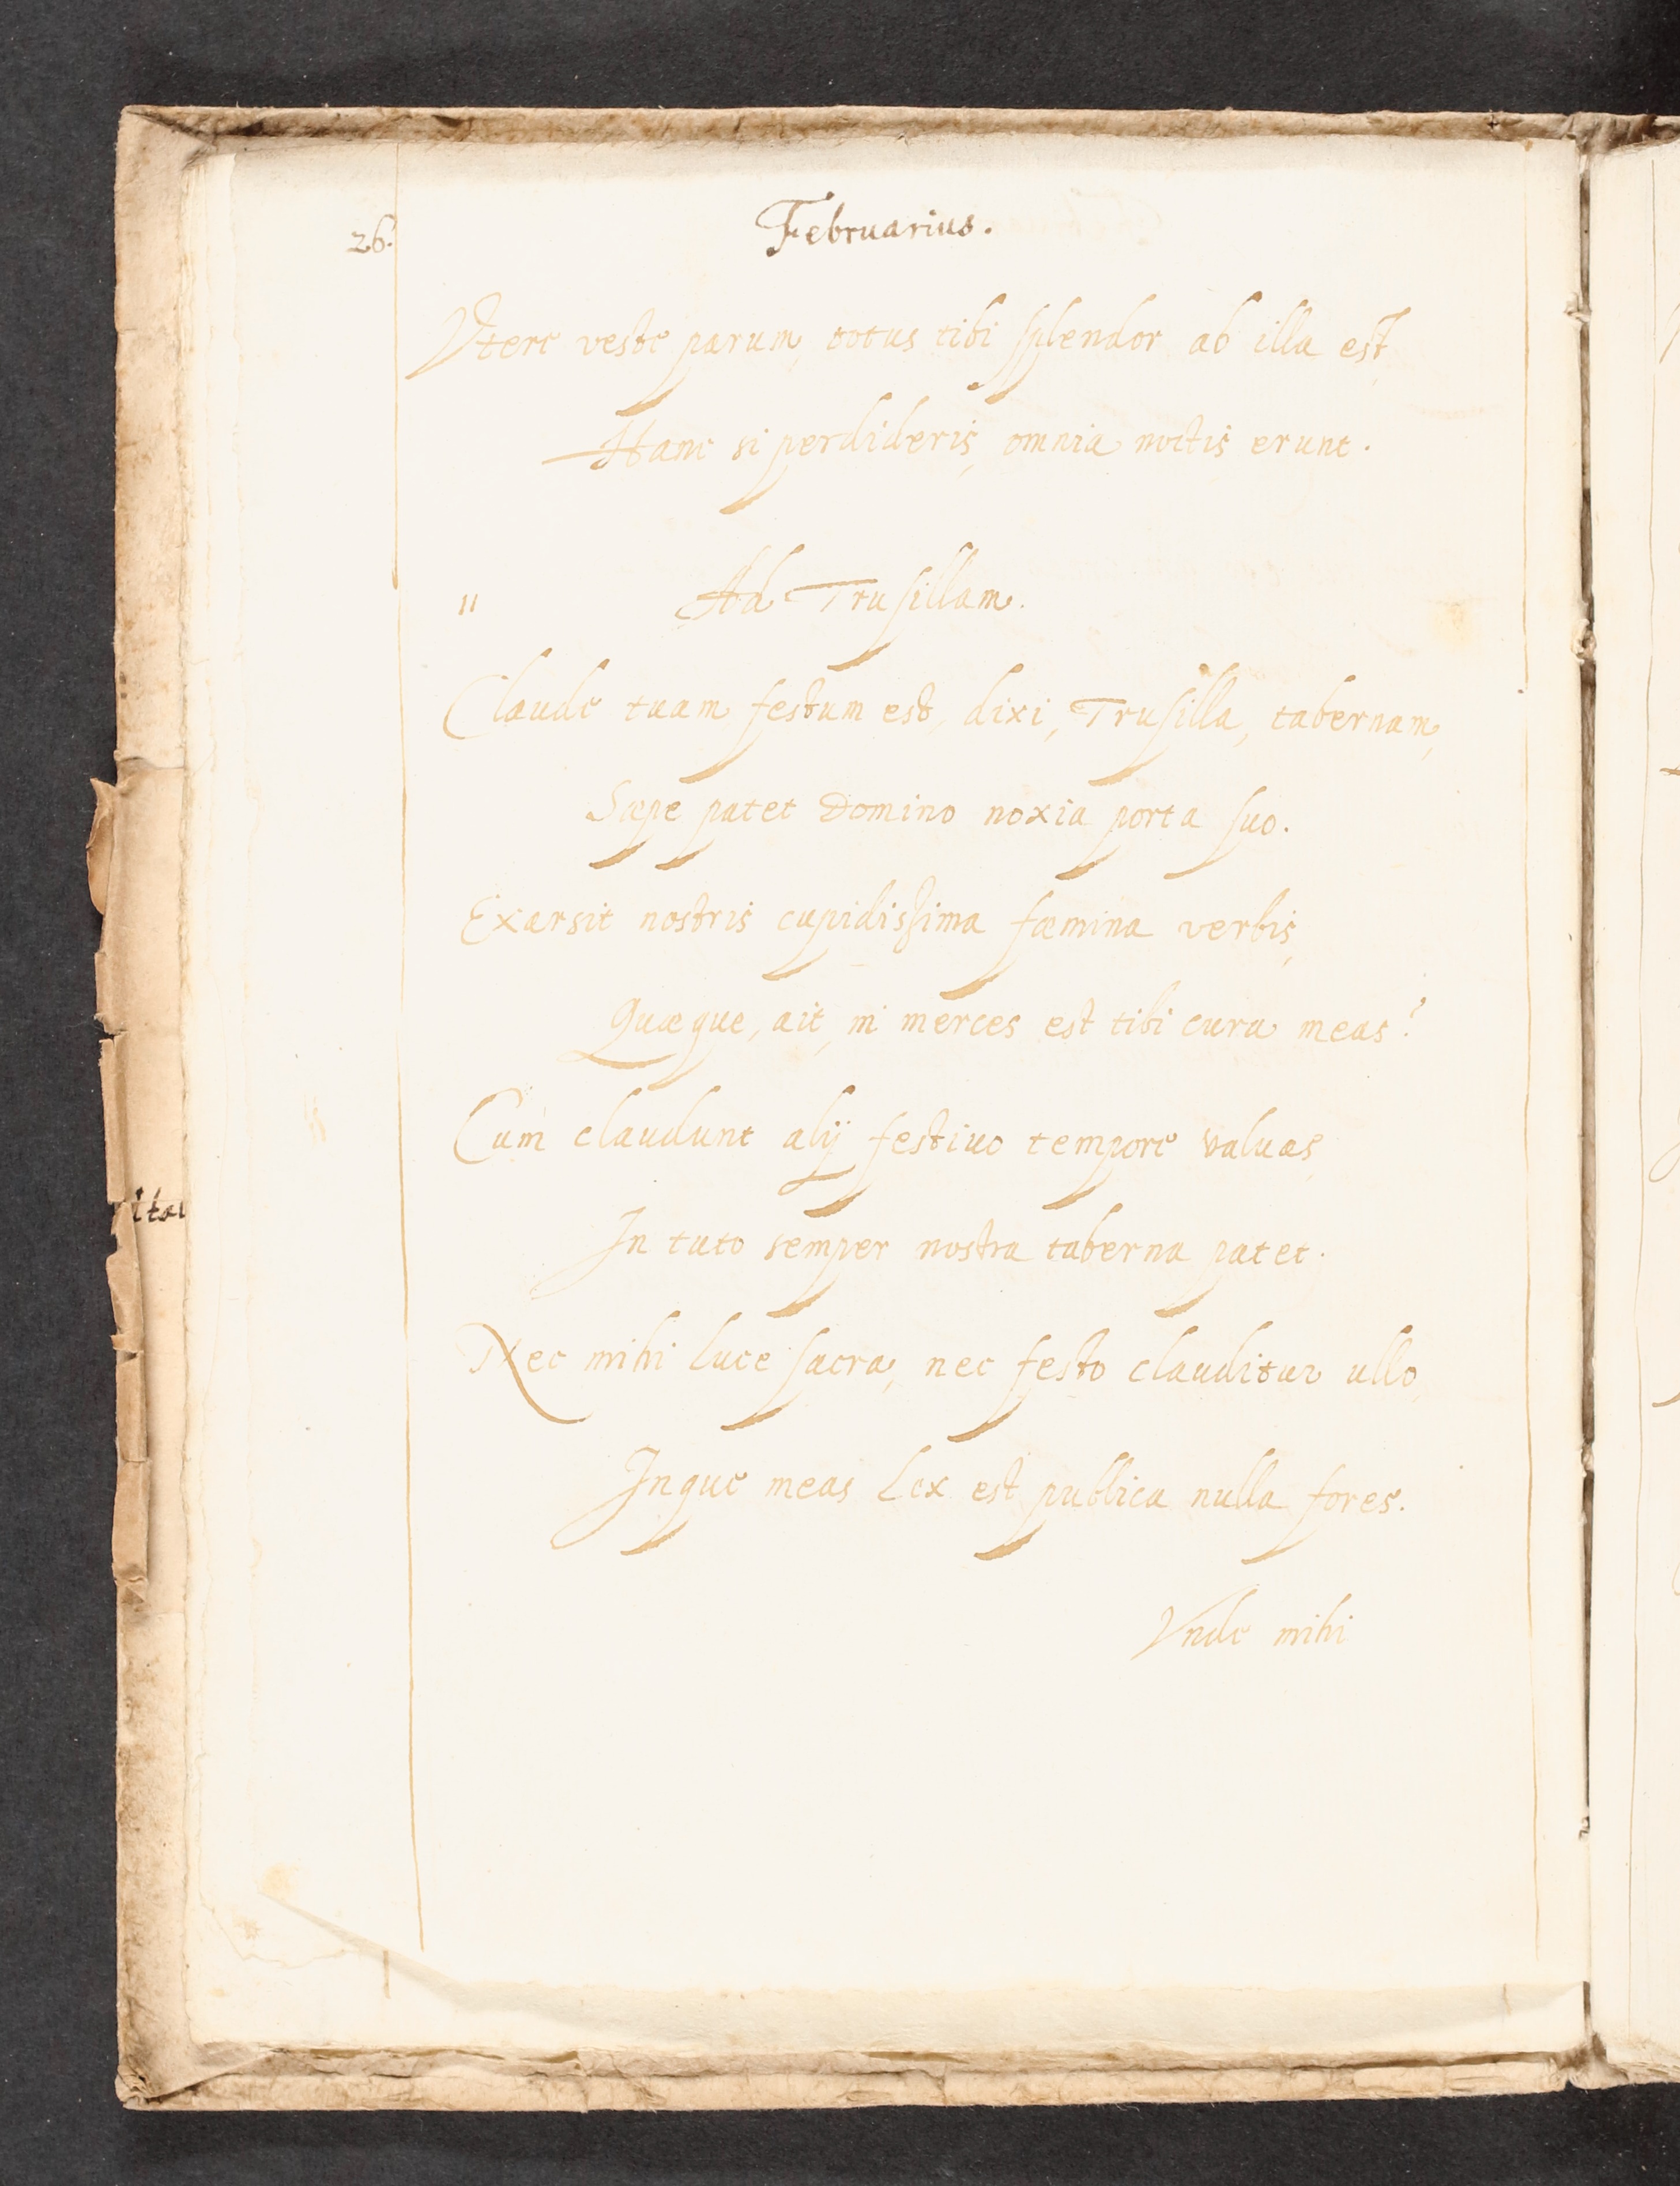 26.
Februarius.
Vtere veste parum, totus tibi splendor ab illa est,
Hanc si perdideris, omnia noctis erunt.
11 Ad Trusillam.
Claude tuam festum est, dixi, Trusilla, tabernam,
Sæpe patet Domino noxia porta suo.
Exarsit nostris cupidissima fæmina verbis,
Quæque, ait, in merces est tibi cura meas?
Cum claudunt alij festiuo tempore valuas,
In tuto semper nostra taberna patet.
Nec mihi luce sacra, nec festo clauditur ullo,
Inque meas Lex est publica nulla fores.
Vnde mihi